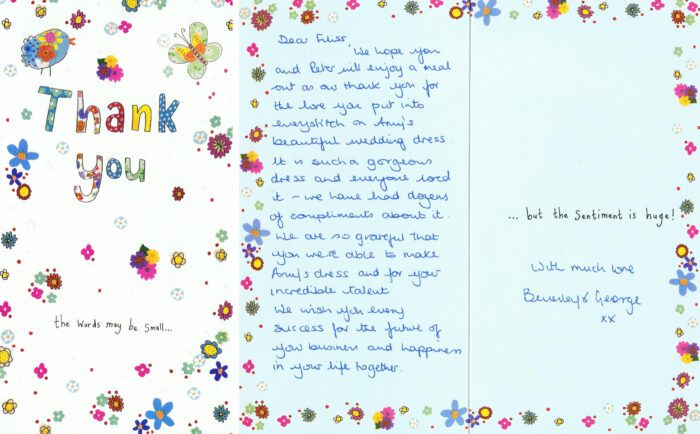 Thank
you
the words may be small...
Dear Fliss,
We hope you
and Peter will enjoy a meal
out as our thank you for
the love you put into
every stitch on Amy's
beautiful wedding dress.
It is such a gorgeous
dress and everyone loved
it – we have had dozens
of compliments about it.
We are so grateful that
you were able to make
Amy's dress and for your
incredible talent
We wish you every
success for the future of
your business and happiness
in your life together.
... but the sentiment is huge!
With much love
Beverley & George
xx